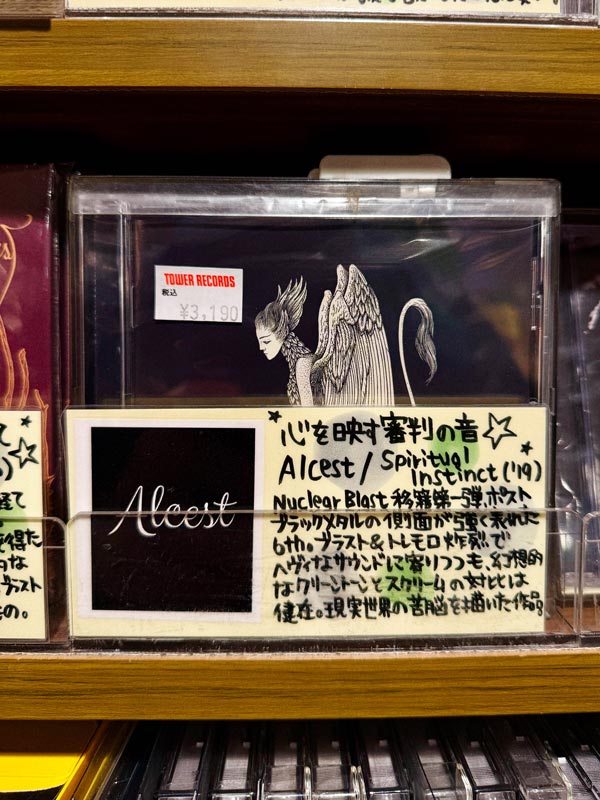 TOWER RECORDS
税込
¥3,190
Alcest
心を映す審判の音
Alcest / Spiritual
Instinct ('19)
Nuclear Blast 移籍第一弾、ポスト
ブラックメタルの側面が強く表れた
6th。ブラスト&トレモロ炸裂で
ヘヴィなサウンドに寄りつつも、幻想的
なクリーントーンとスクリームの対比は
健在。現実世界の苦脳を描いた作品
経て
得た
ブラスト
の。